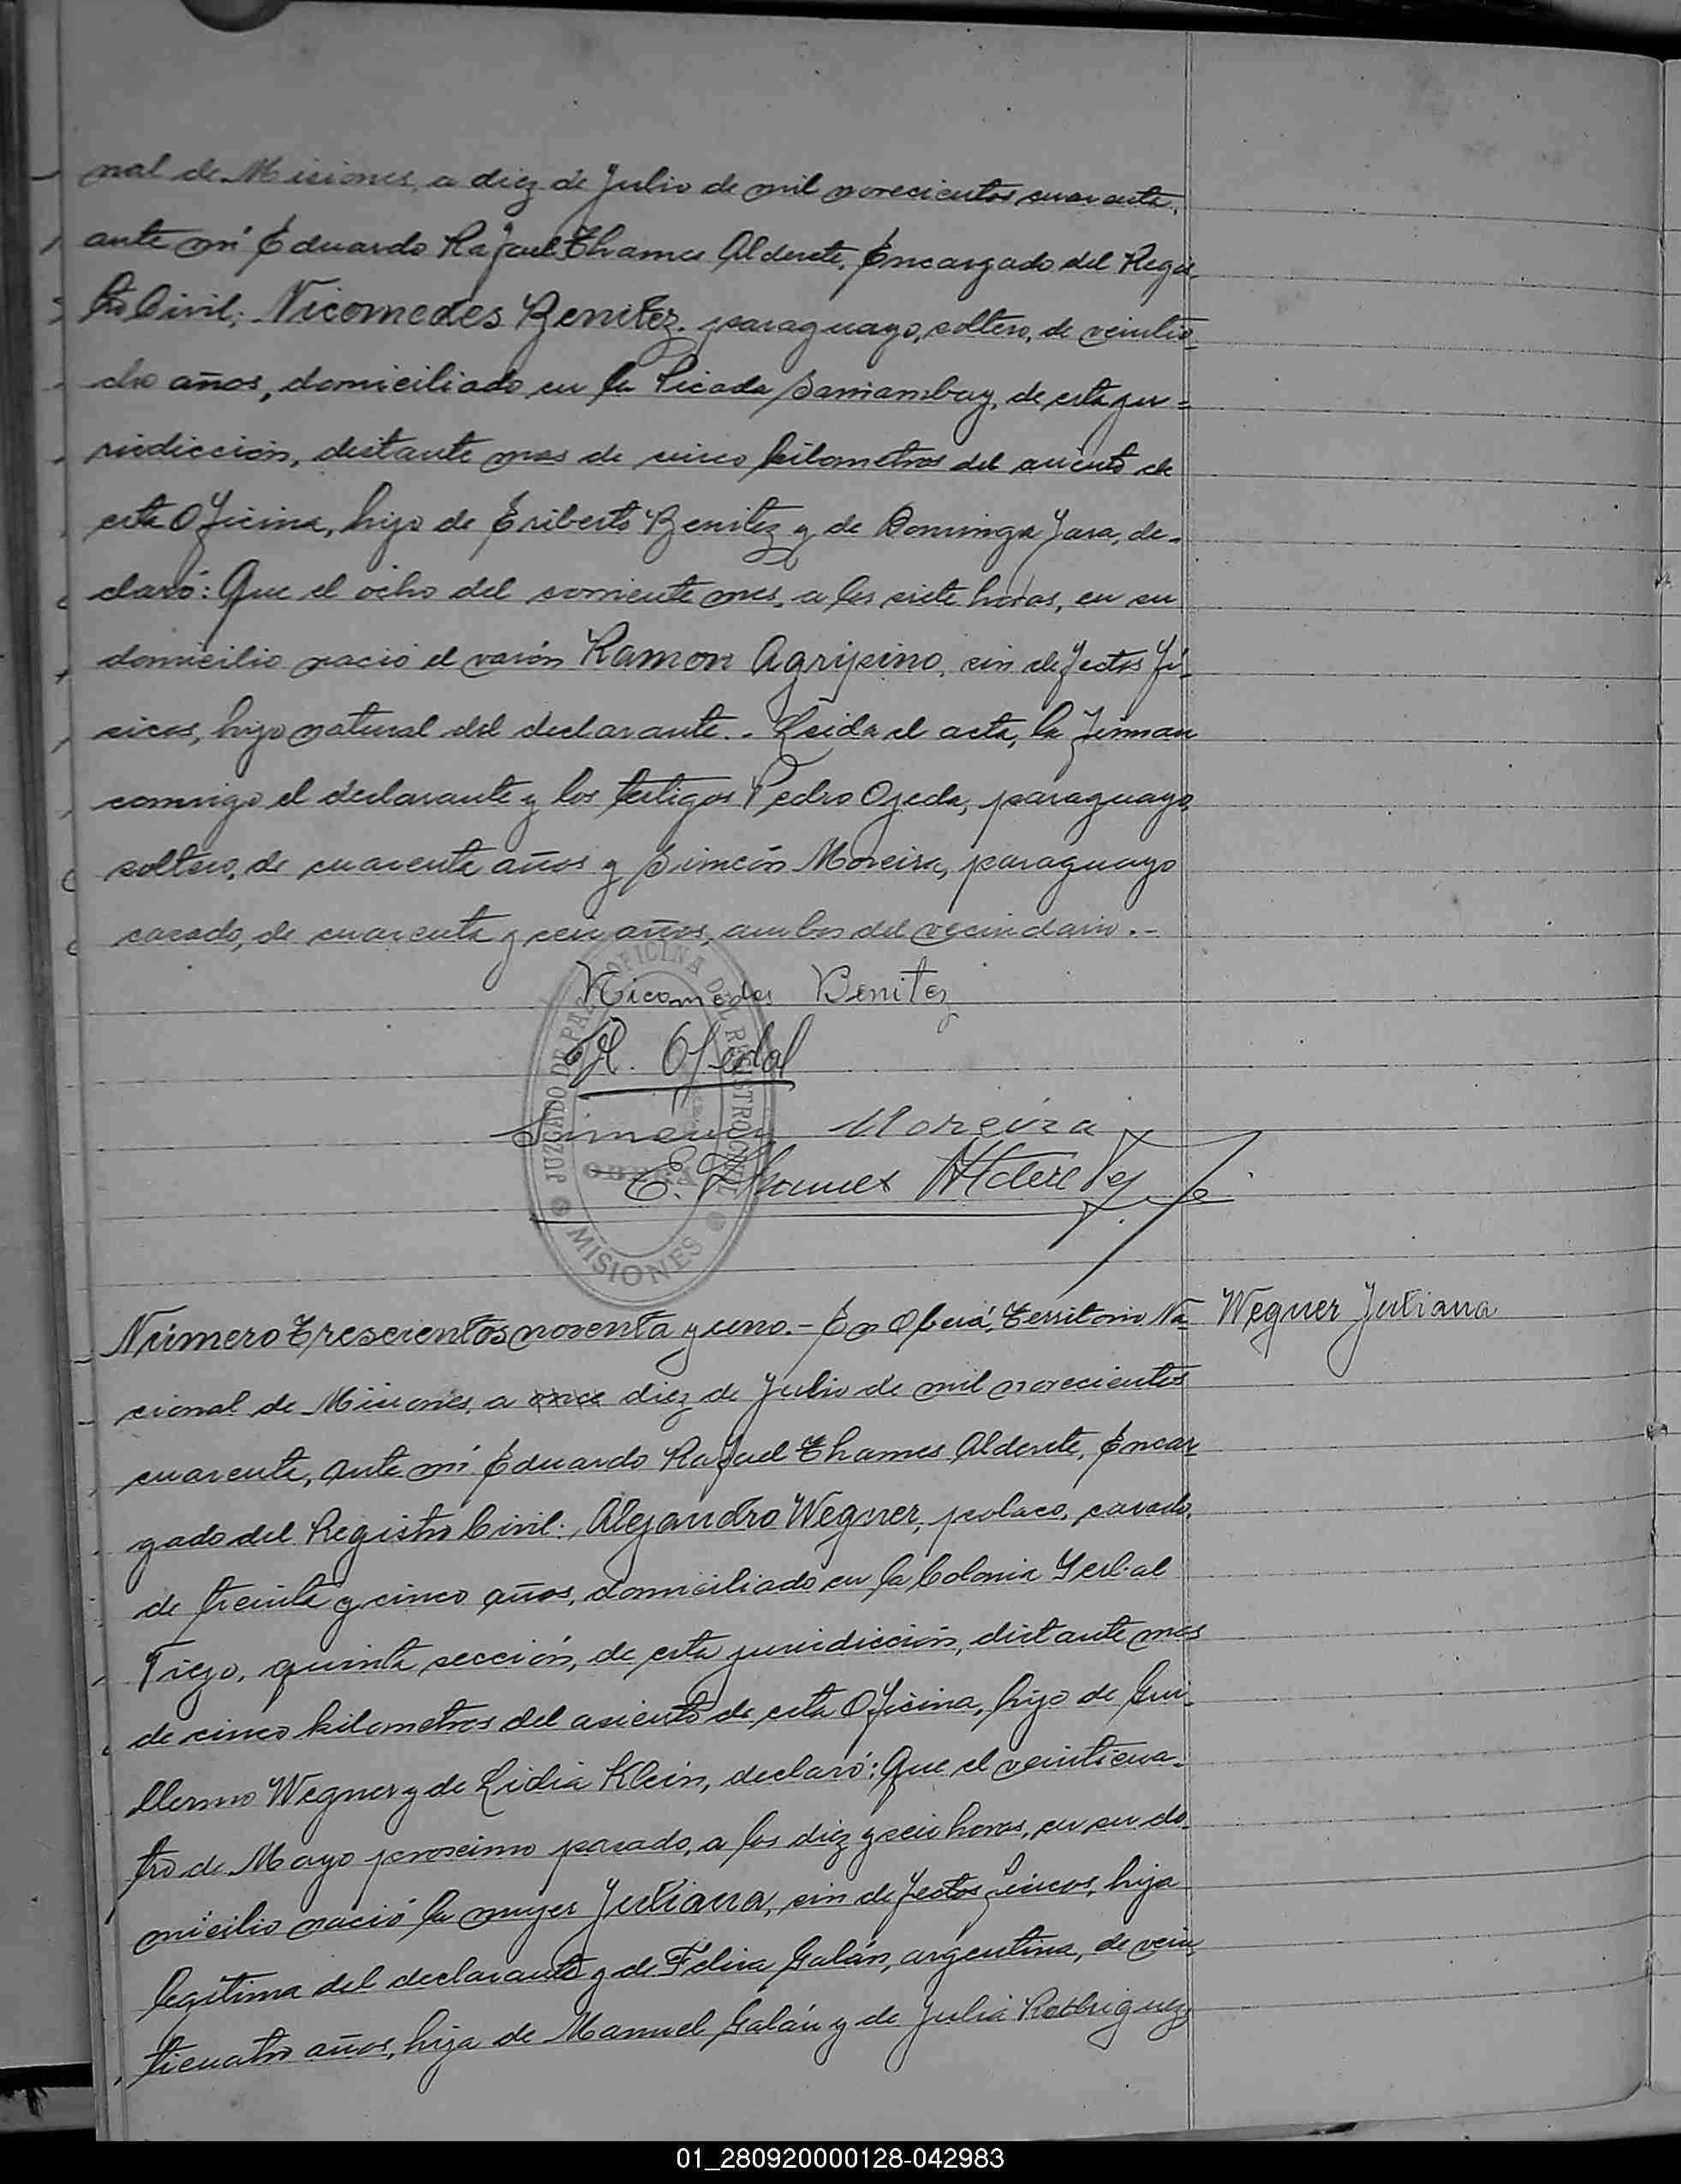 nal de Misiones, a diez de Julio de mil novecientos cuarenta,
ante mí Eduardo Rafael Thames Alderete, Encargado del Regis
tro Civil; Nicomedes Benitez, paraguayo, soltero, de veintio-
cho años, domiciliado en la Picada Samambuy, de esta ju=
risdicción, distante mas de cinco kilometros del asiento de
esta Oficina, hijo de Eriberto Benitez y de Dominga Jara, de-
claró: Que el ocho del corriente mes, a las siete horas, en su
domicilio nació el varón Ramon Agripino, sin defectos fí-
sicos, hijo natural del declarante.- Leida el acta, la firman
conmigo el declarante y los testigos Pedro Ojeda, paraguayo,
soltero, de cuarenta años y Simeón Moreira, paraguayo
casado, de cuarenta y seis años, ambos del vecindario.-
Nicomedes Benitez
Ojeda
Simeon Moreira
E. Thames Alderete
JUZGADO DE PAZ OFICINA DEL REGISTRO CIVIL
OBERA
MISIONES
Número Trescientos noventa y uno.- En Oberá, Territorio Na-
Wegner Juliana
cional de Misiones, a once diez de Julio de mil novecientos
cuarenta, ante mí Eduardo Rafael Thames Alderete, Encar-
gado del Registro Civil: Alejandro Wegner, polaco, casado,
de treinta y cinco años, domiciliado en la Colonia Yerbal
Viejo, quinta sección, de esta jurisdicción, distante mas
de cinco kilometros del asiento de esta Oficina, hijo de Gui-
llermo Wegner y de Lidia Klein, declaró: Que el veinticua-
tro de Mayo proximo pasado, a las diez y seis horas, en su do-
micilio nació la mujer Juliana, sin defectos físicos, hija
legítima del declarante y de Felisa Galán, argentina, de vein
ticuatro años, hija de Manuel Galán y de Julia Rodriguez,
01_280920000128-042983